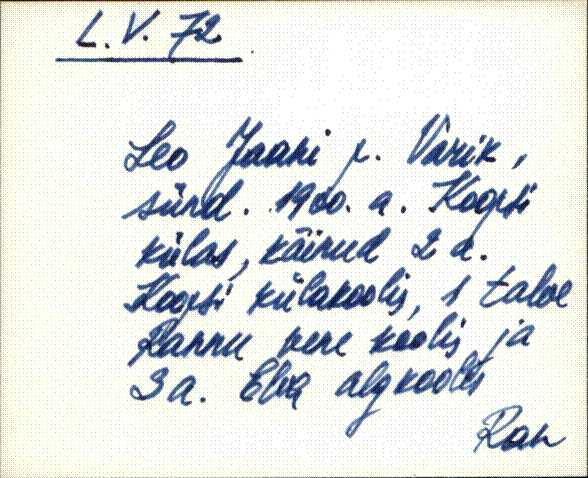 L. V. 72
Leo Jaani p. Varik,
sünd. 1900. a. Koopsi
külas, käinud 2 a.
Koopsi külakoolis, 1 talve
Rannu vene koolis ja
3 a. Elva algkoolis
Ran